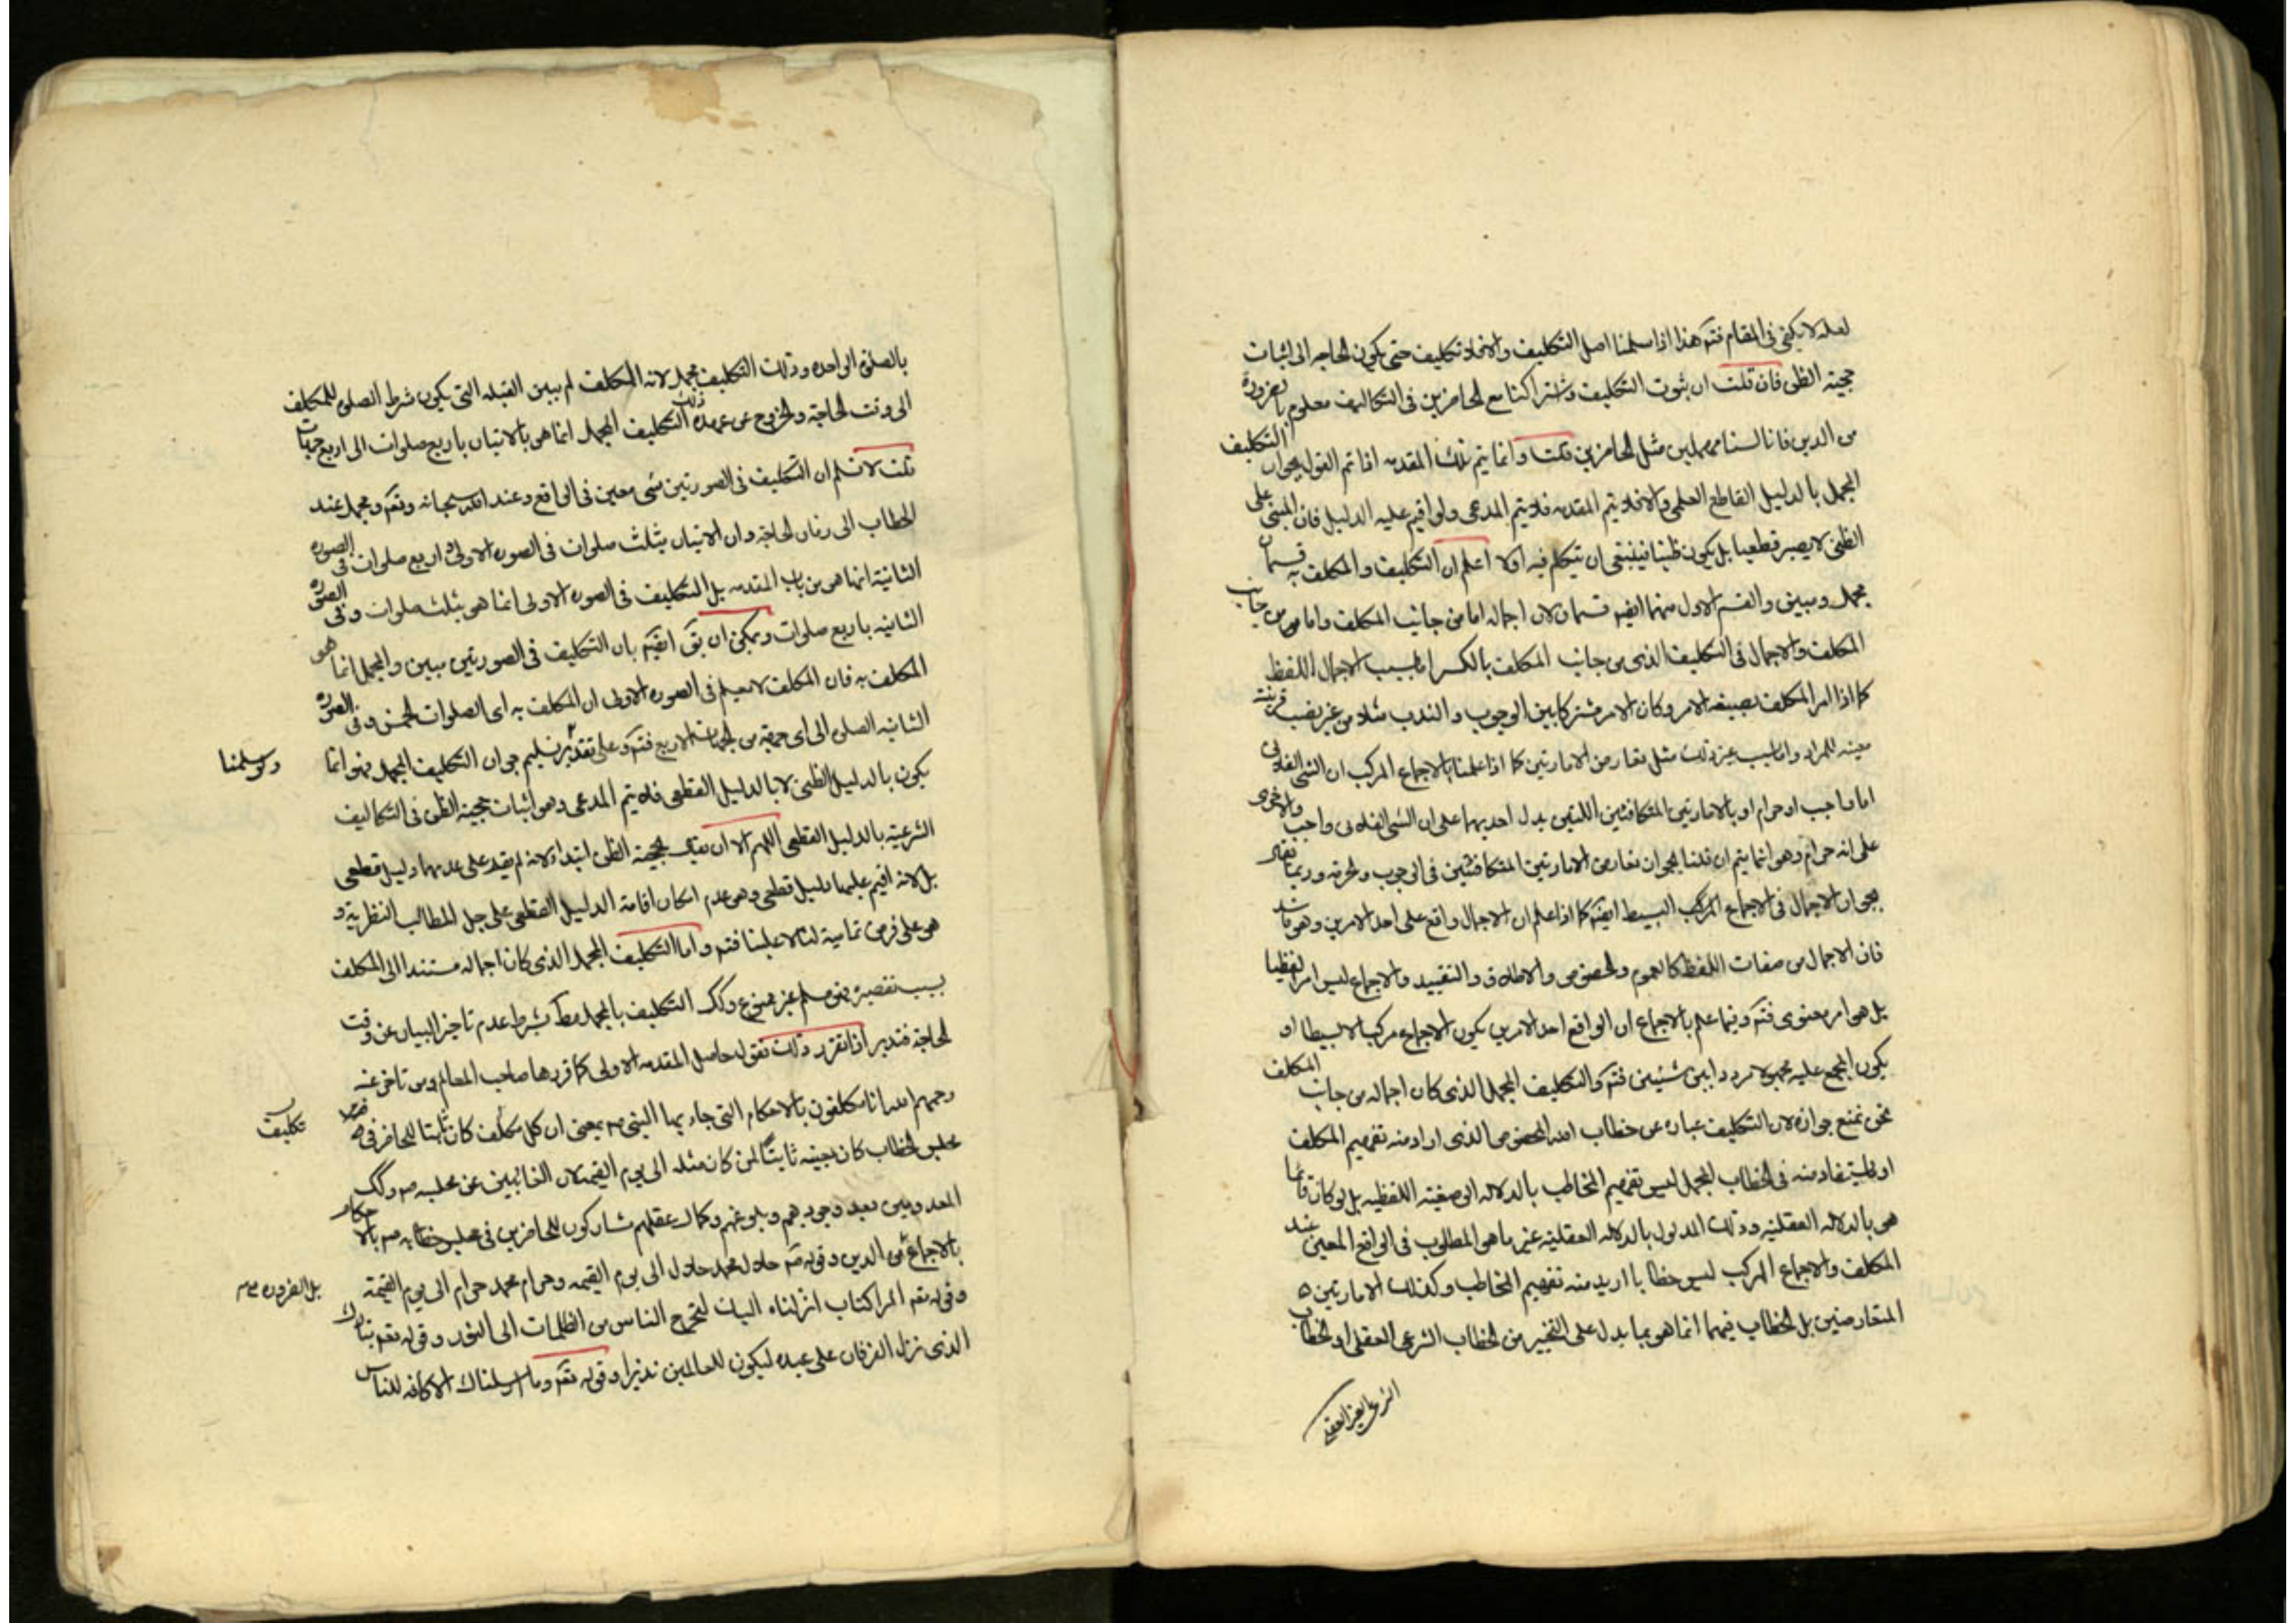 لعله لا يكفى فى المقام فتم هذا اذا سلمنا اصل التكليف والا فلا تكليف حتى يكون الحاجه الى اثبات
حجية الظن فان قلت ان ثبوت التكليف وشتراكنا مع الحاضرين فى التكاليف معلوم بالضرورة
من الدين فانا لسنا مهملين مثل الحاضرين قلت وانما يتم تلك المقدمه اذا تم القول بجواز التكليف
المجمل بالدليل القاطع العلمى والا فلا يتم المقدمه فلا يتم المدعى ولو اقيم عليه الدليل فان المبنى على
الظنى لا يصير قطعيا بل يكون ظنيا فينبغى ان يتكلم فيه اولا اعلم ان التكليف والمكلف به قسمان
مجمل ومبين والقسم الاول منهما ايضم قسمان لان اجماله اما من جانب المكلف واما من جانب
المكلف والاجمال فى التكليف الذى من جانب المكلف بالكسر اما بسبب الاجمال اللفظ
كما اذا امر المكلف بصيغه الامر وكان الامر مشتركا بين الوجوب والندب مثلا من غير نصب قرينة
معينه للمراد واما بسبب غير ذلك مثل تعارض الامارتين كما اذا علمنا بالاجماع المركب ان الشى الفلانى
اما واجب او حرام او بالامارتين المتكافئتين اللتين يدل احديهما على ان الشى الفلانى واجب والاخرى
على انه حرام وهو انما يتم ان قلنا بجواز تعارض الامارتين المتكافئتين فى الوجوب والحرمه وربما يقال
بجواز الاجمال فى الاجماع المركب البسيط ايضم كما اذا علم ان الاجمال واقع على احد الامرين وهو فاسد
فان الاجمال من صفات اللفظ كالعموم والخصوص والاطلاق والتقييد والاجماع ليس امرا لفظيا
بل هو امر معنوى فتم وفيما علم بالاجماع ان الواقع احد الامرين يكون الاجماع مركبا لا بسيطا او
يكون المجمع عليه مجهولا مرددا بين شيئين فتم والتكليف المجمل الذى كان اجماله من جانب المكلف
نحن نمنع جوازه لان التكليف عباره عن خطاب الله المخصوص الذى اراد منه تفهيم المكلف
او المستفاد منه فى الخطاب المجمل ليس تفهيم المخاطب بالدلاله الوضعيته اللفظيه بل لو كان فانما
هى بالدلاله العقليه وذلك المدلول بالدلاله العقليه غير ما هو المطلوب فى الواقع المعين عند
المكلف والاجماع المركب ليس خطابا اريد منه تفهيم المخاطب وكذلك الامارتين
المتعارضين بل الخطاب فيهما انما هو بما يدل على التخيير من الخطاب الشرعى العقلى او الخطاب
الشرعى الغير العقلى
بالصلوة الواحده وذلك التكليف مجمل لانه المكلف لم يبين القبله التى يكون شرط الصلوة للمكلف
الى وقت الحاجة والخروج عن عهده ذلك التكليف المجمل انما هو بالاتيان باربع صلوات الى اربع جهات
قلت لا نسلم ان التكليف فى الصورتين شى معين فى الواقع وعند الله سبحانه وتعم ومجمل عند
الخطاب الى زمان الحاجة وان الاتيان بثلث صلوات فى الصوره الاولى واربع صلوات فى الصوره
الثانية انما هو من باب المقدمه بل التكليف فى الصوره الاولى انما هو بثلث صلوات وفى الصوره
الثانيه باربع صلوات ويمكن ان يق ايضم بان التكليف فى الصورتين مبين والمجمل انما هو
المكلف به فان المكلف لا يعلم فى الصوره الاولى ان المكلف به اى الصلوات الخمس وفى الصوره
الثانيه الصلى الى اى جهة من الجهات الاربع فتم وعلى تقدير تسليم جواز التكليف المجمل فهو انما
ولو سلمنا
يكون بالدليل الظنى لا بالدليل القطعى فلا يتم المدعى وهو اثبات حجية الظن فى التكاليف
الشرعيه بالدليل القطعى اللهم الا ان يقال بحجية الظن ابتداء لا انه لم يقم على عدمها دليل قطعى
بل لانه اقيم عليها دليل قطعى وهو عدم امكان اقامة الدليل القطعى على جل المطالب النظرية و
هو على فرض تماميه لنا لا علينا فتم واما التكليف المجمل الذى كان اجماله مستندا الى المكلف
بسبب تقصيره فهو مسلم غير ممنوع وكك التكليف بالمجمل مط بشرط عدم تاخير البيان عن وقت
الحاجة فتدبر اذا تقرر ذلك نقول حاصل المقدمه الاولى كما قررها صاحب المعالم ومن تاخر عنه
رحمهم الله انا مكلفون بالاحكام التى جاء بها النبى ص بمعنى ان كل مكلف كان ثابتا للحاضر فى
تكليف
مجلس الخطاب كان بعينه ثابتا لمن كان مثله الى يوم القيمه لان الغائبين عن مجلسه ص وكك
المعدومين بعد وجودهم وبلوغهم وكمال عقلهم مشاركون للحاضرين فى مجلس خطابه ص بالاحكام
بالاجماع من الدين وقوله ص حلال محمد حلال الى يوم القيمه وحرام محمد حرام الى يوم القيمة
بل الضروره
وقوله تعم المر كتاب انزلناه اليك لتخرج الناس من الظلمات الى النور وقوله تعم تبارك
الذى نزل الفرقان على عبده ليكون للعالمين نذيرا وقوله تعم وما ارسلناك الا كافه للناس